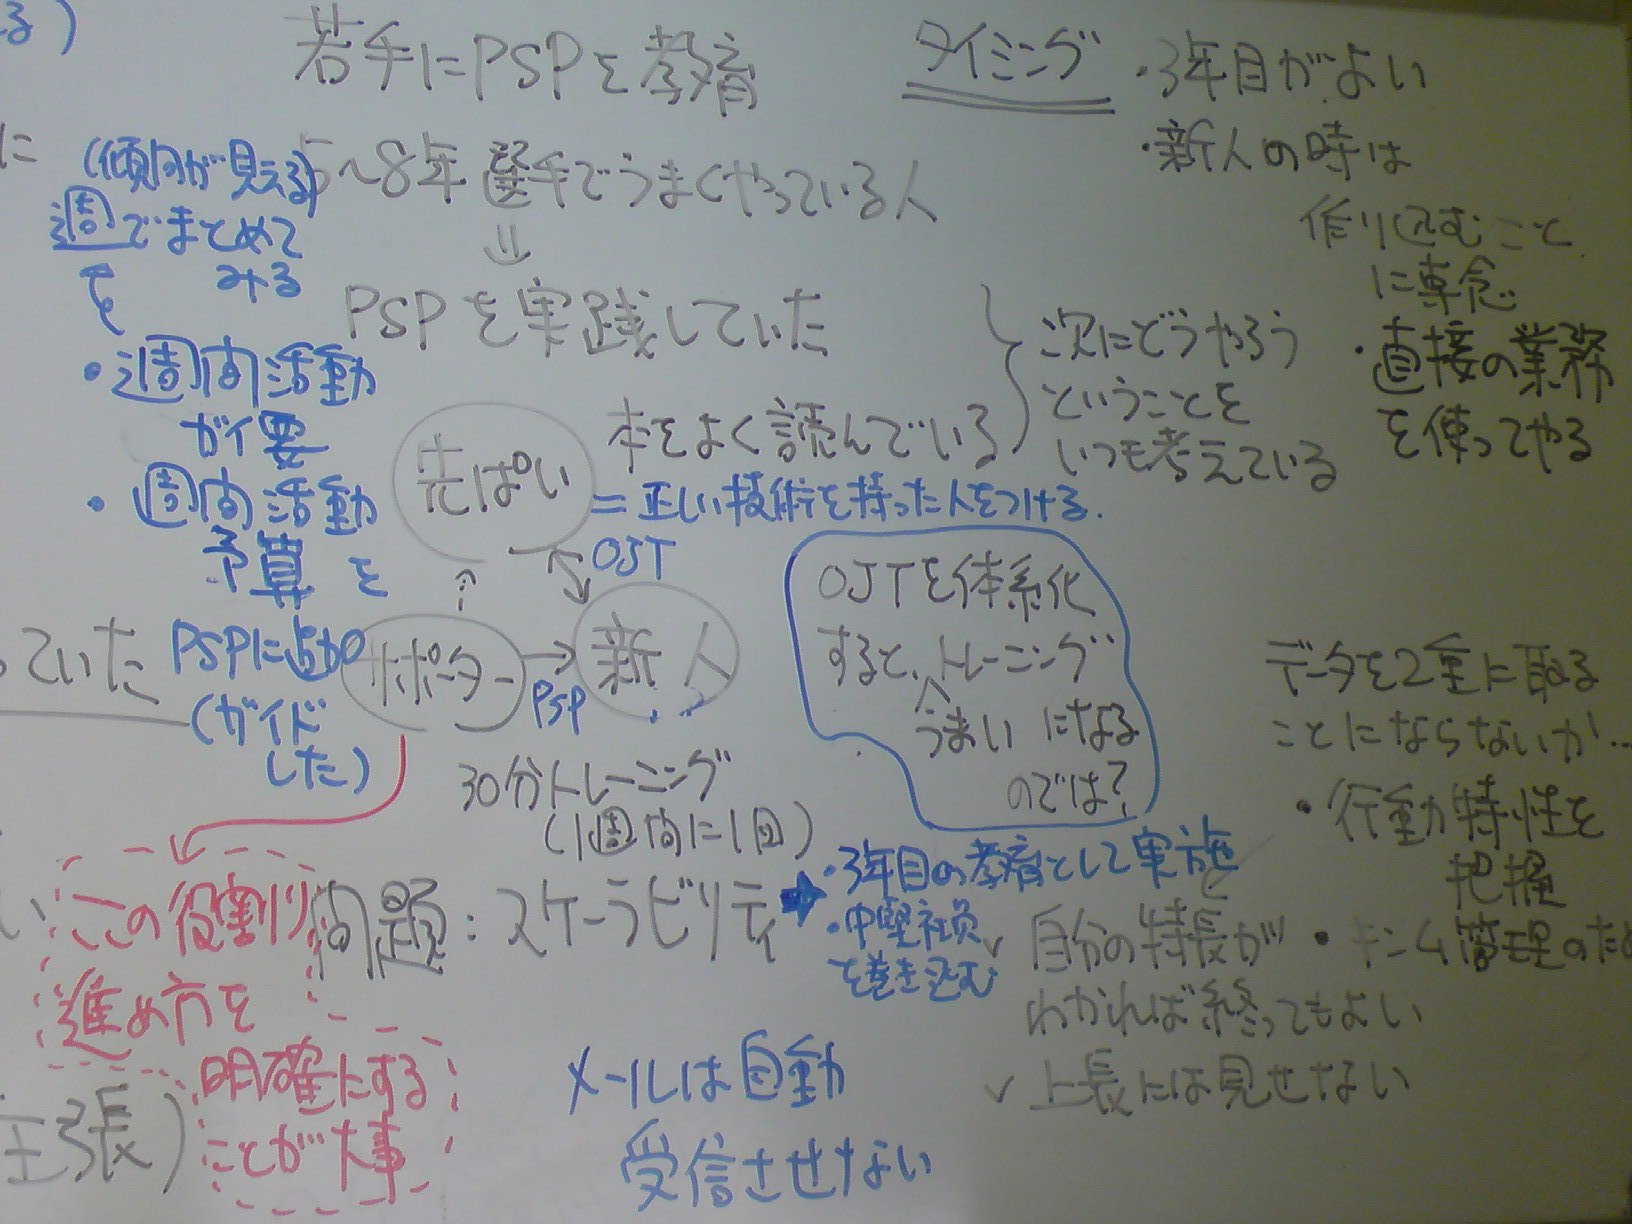 若手にPSPを教育
タイミング
・3年目がよい
・新人の時は
作り込むこと
に専念
・直接の業務
を使ってやる
に
(傾向が見える)
週でまとめて
みる
5〜8年選手でうまくやっている人
⇓
PSPを実践していた
本をよく読んでいる
次にどうやろう
ということを
いつも考えている
・週間活動
が重要
・週間活動
予算を
PSPに追加
(ガイド
した)
先ぱい
=正しい技術を持った人をつける.
OJT
サポーター
PSP
新人
30分トレーニング
(1週間に1回)
OJTを体系化
すると、トレーニング
うまい になる
のでは?
っていた
データを2重に取る
ことにならないか…
・行動特性を
把握
・キンム管理のため
この役割り
進め方を
明確にする
ことが大事
問題:スケーラビリティ
・3年目の教育として実施
・中堅社員
を巻き込む
✓ 自分の特長が
わかれば終ってもよい
✓ 上長には見せない
メールは自動
受信させない
主張)